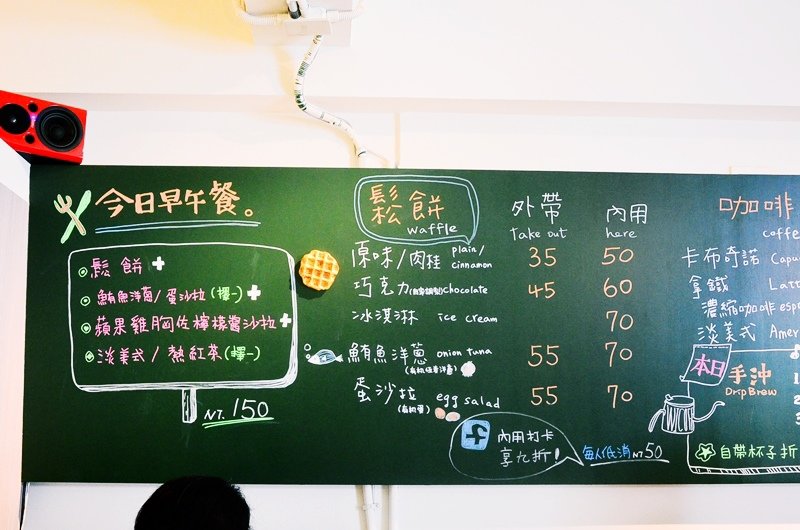 今日早午餐。
鬆餅+
鮪魚洋蔥/蛋沙拉(擇一)+
蘋果雞胸佐檸檬醬沙拉+
淡美式/熱紅茶(擇一)
NT. 150
鬆餅 外帶 內用
waffle take out here
原味/肉桂 plain/cinnamon 35 50
巧克力 chocolate 45 60
冰淇淋 ice cream 70
鮪魚洋蔥 onion tuna 55 70
蛋沙拉 egg salad 55 70
f 內用打卡
享九折!
每人低消NT50
咖啡
coffe
卡布奇諾 Capu
拿鐵 Latt
濃縮咖啡 esp
淡美式 Amer
本日
手沖
Drip Brew
自帶杯子折